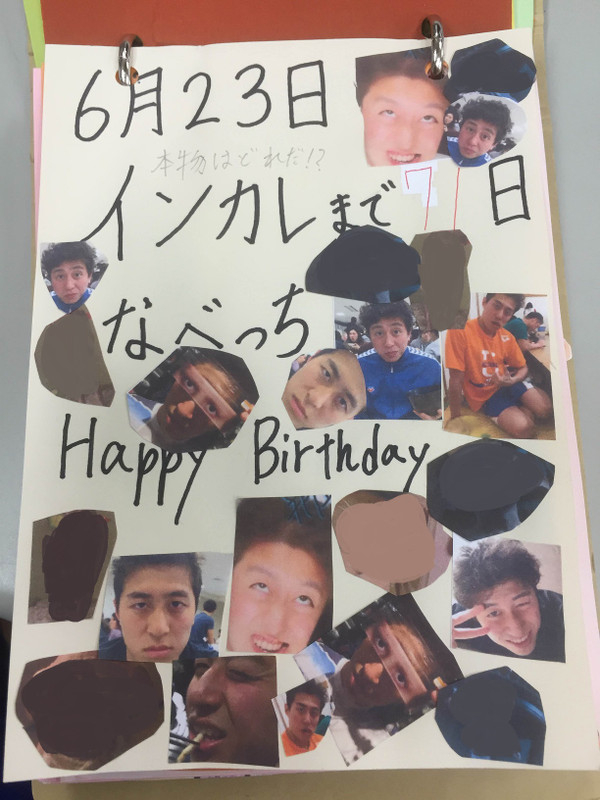 6月23日
本物はどれだ!?
インカレまで71日
なべっち
Happy Birthday